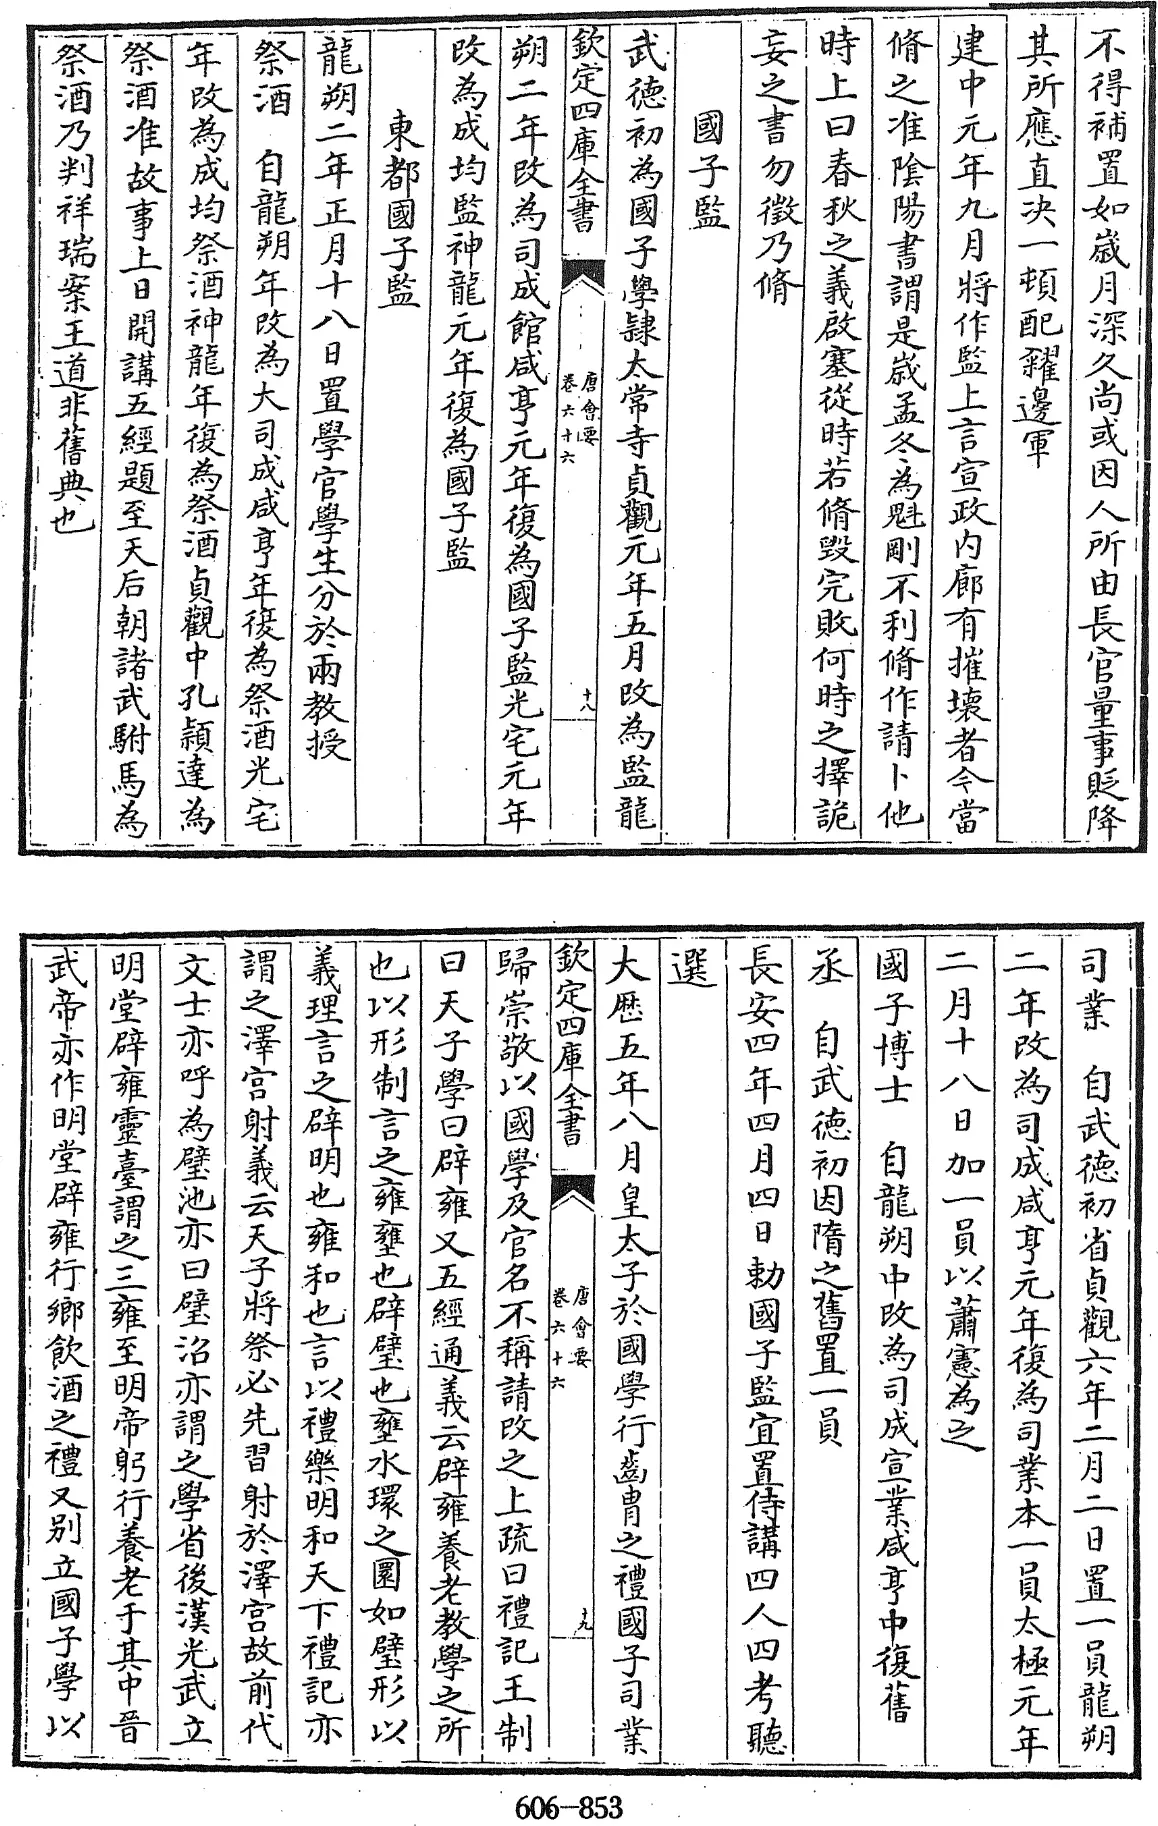 不得補置如嵗月深久尚或因人所由長官量事貶降
其所應直决一頓配糴邊軍
建中元年九月將作監上言宣政内廊有摧壊者今當
脩之准陰陽書謂是嵗孟冬為魁剛不利脩作請卜他
時上曰春秋之義啟塞從時若脩毁完敗何時之擇詭
妄之書勿徵乃脩
國子監
武徳初為國子學隷太常寺貞觀元年五月改為監龍
欽定四庫全書
唐會要
卷六十六
十八
朔二年改為司成館咸亨元年復為國子監光宅元年
改為成均監神龍元年復為國子監
東都國子監
龍朔二年正月十八日置學官學生分於兩教授
祭酒 自龍朔年改為大司成咸亨年復為祭酒光宅
年改為成均祭酒神龍年復為祭酒貞觀中孔穎達為
祭酒准故事上日開講五經題至天后朝諸武駙馬為
祭酒乃判祥瑞案王道非舊典也
司業 自武徳初省貞觀六年二月二日置一員龍朔
二年改為司成咸亨元年復為司業本一員太極元年
二月十八日加一員以蕭憲為之
國子博士 自龍朔中改為司成宣業咸亨中復舊
丞 自武徳初因隋之舊置一員
長安四年四月四日勅國子監宜置侍講四人四考聽
選
大厯五年八月皇太子於國學行齒胄之禮國子司業
欽定四庫全書
唐會要
卷六十六
十九
歸崇敬以國學及官名不稱請改之上疏曰禮記王制
曰天子學曰辟雍又五經通義云辟雍養老教學之所
也以形制言之雍壅也辟璧也壅水環之圜如璧形以
義理言之辟明也雍和也言以禮樂明和天下禮記亦
謂之澤宫射義云天子將祭必先習射於澤宫故前代
文士亦呼為璧池亦曰璧沼亦謂之學省後漢光武立
明堂辟雍靈臺謂之三雍至明帝躬行養老于其中晉
武帝亦作明堂辟雍行鄉飲酒之禮又别立國子學以
606—853